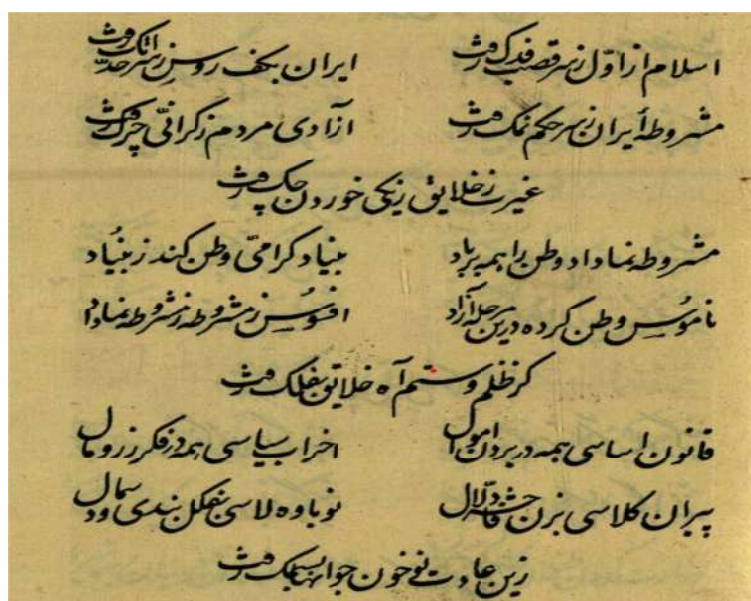 اسلام از اوّل ز سر قصب فدک رفت ایران بکف روس ز سر حدّ اتک رفت
مشروطهٔ ایران ز سر حکم نمک رفت آزادی مردم ز گرانیّ چرک رفت
غیرت ز خلایق ز پی خوردن چک رفت
مشروطه نما داد وطن را همه بر باد بنیاد گرامیّ وطن کند ز بنیاد
ناموس وطن کرده درین مرحله آزاد افسوس ز مشروطه ز مشروطه نما داد
کز ظلم و ستم آه خلایق بفلک رفت
قانون اساسی همه در بردن اموال احزاب سیاسی همه در فکر زر و مال
پیران کلاسی بزن دلال نوباوه لاسی بفکل بندی
زین عادت نو خون جوانها رفت